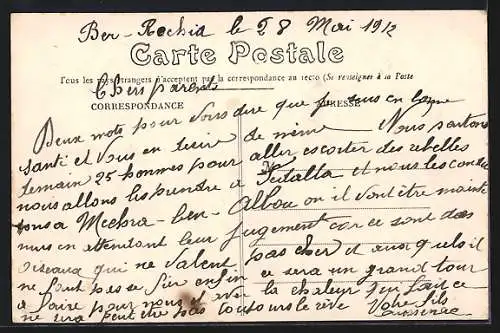 Ber-Rechid le 28 Mai 1912
Carte Postale
Tous les pays étrangers n'acceptent pas la correspondance au recto (Se renseigner à la Poste
Chers parents
CORRESPONDANCE ADRESSE
Deux mots pour vous dire que je suis en bonne
santé et vous en desire de même. Nous partons
demain 25 hommes pour aller escorter des rebelles
nous allons les prendre a et nous les condui
sons a Mechra-ben-Abbou ou il vont être mainte
nus en attendant leur jugement car ce sont des
oiseaux qui ne valent pas cher et aussi qu'els il
ne faut pas se fier enfin ce sera un grand tour
a faire pour nous et avec la chaleur qui fait ce
ne sera peut être pas toutours le rêve Votre fils